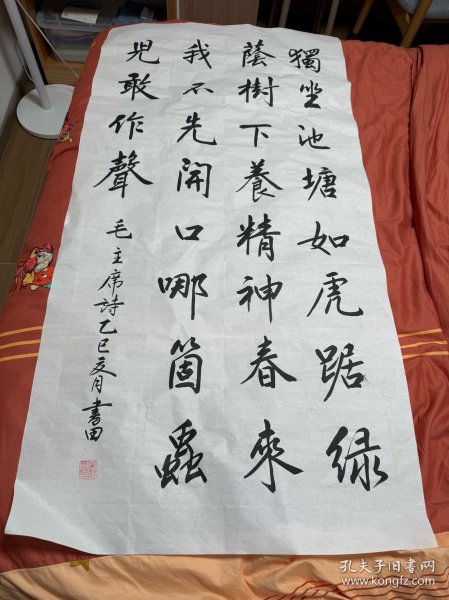 獨坐池塘如虎踞綠
蔭樹下養精神春來
我不先開口哪箇蟲
兒敢作聲
毛主席詩乙巳夏月書田
孔夫子旧书网
www.kongfz.com